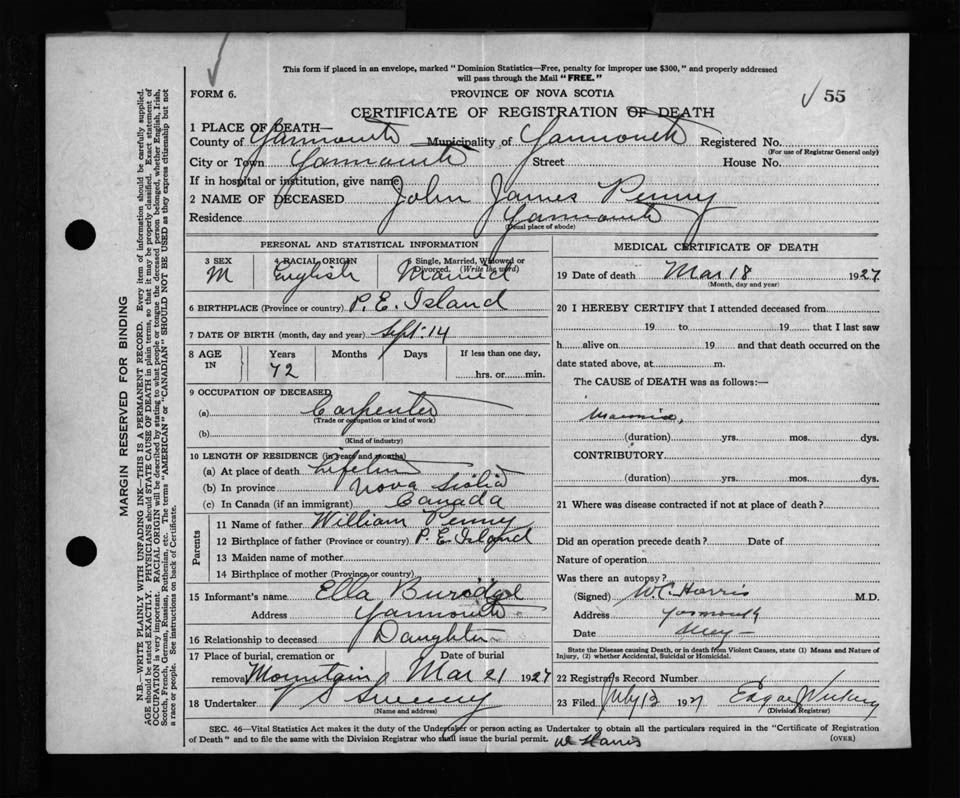 This form if placed in an envelope, marked "Dominion Statistics—Free, penalty for improper use $300," and properly addressed
will pass through the Mail "FREE."
FORM 6.
PROVINCE OF NOVA SCOTIA
55
CERTIFICATE OF REGISTRATION OF DEATH
1 PLACE OF DEATH—
County of Yarmouth Municipality of Yarmouth Registered No.
(For use of Registrar General only)
City or Town Yarmouth Street House No.
If in hospital or institution, give name
2 NAME OF DECEASED John James Penny
Residence Yarmouth
(Usual place of abode)
PERSONAL AND STATISTICAL INFORMATION
3 SEX 4 RACIAL ORIGIN 5 Single, Married, Widowed or Divorced. (Write the word)
M English Married
6 BIRTHPLACE (Province or country) P.E. Island
7 DATE OF BIRTH (month, day and year) Sept. 14
8 AGE IN Years Months Days If less than one day,
72 hrs. or min.
9 OCCUPATION OF DECEASED
(a) Carpenter
(Trade or occupation or kind of work)
(b)
(Kind of industry)
10 LENGTH OF RESIDENCE (in years and months)
(a) At place of death
(b) In province Nova Scotia
(c) In Canada (if an immigrant) Canada
Parents
11 Name of father William Penny
12 Birthplace of father (Province or country) P.E. Island
13 Maiden name of mother
14 Birthplace of mother (Province or country)
15 Informant's name Ella
Address Yarmouth
16 Relationship to deceased Daughter
17 Place of burial, cremation or Date of burial
removal Mountain Mar 21 1927
18 Undertaker V S Sweeny
(Name and address)
MEDICAL CERTIFICATE OF DEATH
19 Date of death Mar 18 1927
(Month, day and year)
20 I HEREBY CERTIFY that I attended deceased from
19 to 19 that I last saw
h alive on 19 and that death occurred on the
date stated above, at m.
The CAUSE of DEATH was as follows:—
(duration) yrs. mos. dys.
CONTRIBUTORY
(duration) yrs. mos. dys.
21 Where was disease contracted if not at place of death?
Did an operation precede death? Date of
Nature of operation
Was there an autopsy?
(Signed) W.C. Harris M.D.
Address Yarmouth
Date
State the Disease causing Death, or in death from Violent Causes, state (1) Means and Nature of
Injury, (2) whether Accidental, Suicidal or Homicidal.
22 Registrar's Record Number
23 Filed July 13 1927 Edgar
(Division Registrar)
SEC. 46—Vital Statistics Act makes it the duty of the Undertaker or person acting as Undertaker to obtain all the particulars required in the "Certificate of Registration
of Death" and to file the same with the Division Registrar who shall issue the burial permit.
(OVER)
MARGIN RESERVED FOR BINDING
N.B.—WRITE PLAINLY WITH UNFADING INK—THIS IS A PERMANENT RECORD. Every item of information should be carefully supplied.
AGE should be stated EXACTLY. PHYSICIANS should STATE CAUSE OF DEATH in plain terms, so that it may be properly classified. Exact statement of
OCCUPATION is very important. RACIAL ORIGIN will be described by stating to what people or tongue the deceased person belonged, whether English, Irish,
Scotch, French, German, Russian, Ruthenian, etc. The terms "AMERICAN" or "CANADIAN" SHOULD NOT BE USED as they express citizenship but not
a race or people. See instructions on back of Certificate.